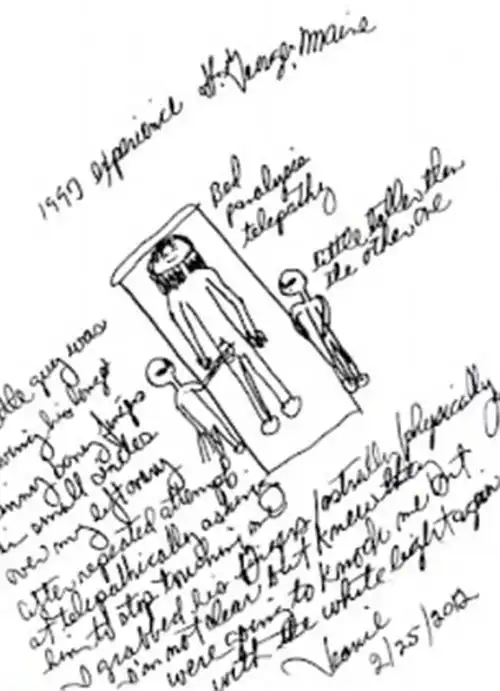 1997 experience St. George, Maine
Bed
paralysis
telepathy
little taller than
the other one
guy was
his long
bony
in small circles
over my left
after repeated attempt
at telepathically asking
him to stop touching me
I grabbed his fingers/astrally/physically
I'm not clear but knew they
were going to knock me out
with the white light again
2/25/2012